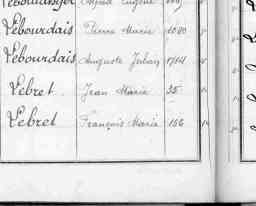 Lebourdais Pierre Marie 1090
Lebourdais Auguste Julien 1714
Lebret Jean Marie 35
Lebret François Marie 156